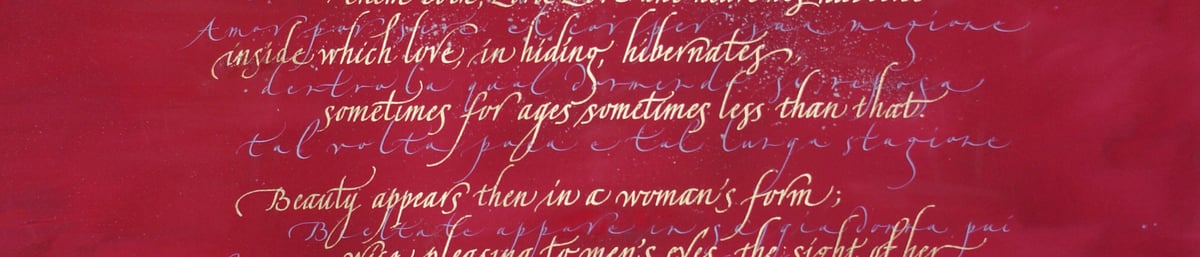 Amor per sire el cor per sua magione
inside which love, in hiding, hibernates,
dentro la qual dormendo si riposa
sometimes for ages sometimes less than that.
tal volta poca e tal lunga stagione
Beauty appears then in a woman's form;
Beltate appare in saggia donna pui
pleasing to men's eyes, the sight of her